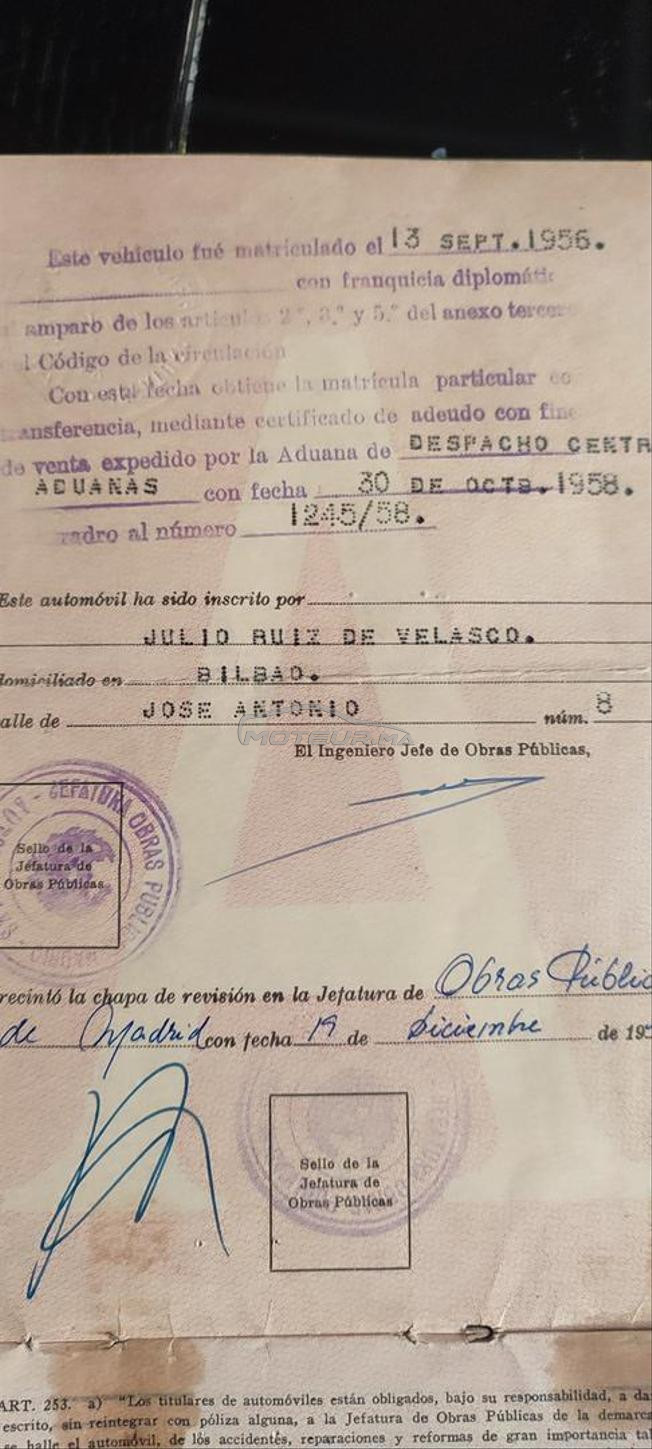 Este vehículo fué matriculado el 13 SEPT.1956.
con franquicia diplomátic
amparo de los artículos 2.º, 3.º y 5.º del anexo tercero
l Código de la circulación
Con esta fecha obtiene la matrícula particular co
ansferencia, mediante certificado de adeudo con fine
de venta expedido por la Aduana de DESPACHO CENTR
ADUANAS con fecha 30 DE OCTB.1958.
adro al número 1245/58.
Este automóvil ha sido inscrito por
JULIO RUIZ DE VELASCO.
domiciliado en BILBAO.
alle de JOSE ANTONIO núm. 8
MOTEUR.MA
El Ingeniero Jefe de Obras Públicas,
JEFATURA OBRAS PUBLIC
Sello de la
Jefatura de
Obras Públicas
recintó la chapa de revisión en la Jefatura de Obras Públic
de Madrid con fecha 19 de diciembre de 195
Sello de la
Jefatura de
Obras Públicas
ART. 253. a) "Los titulares de automóviles están obligados, bajo su responsabilidad, a da
escrito, sin reintegrar con póliza alguna, a la Jefatura de Obras Públicas de la demarca
se halle el automóvil, de los accidentes, reparaciones y reformas de gran importancia tal